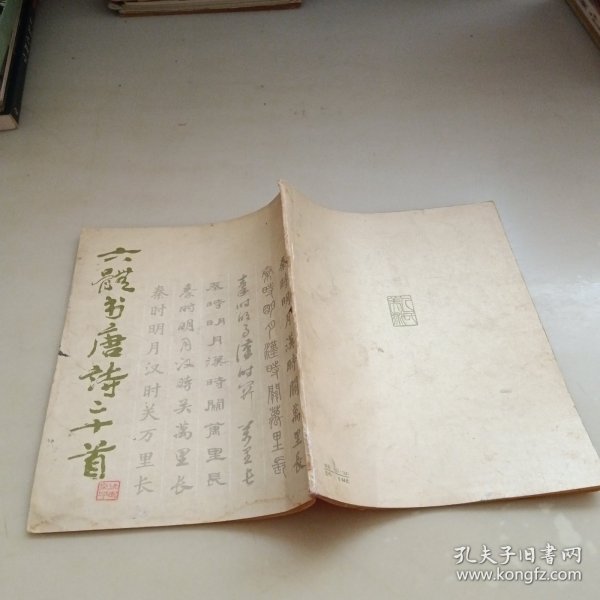 六體书唐詩二十首
秦时明月汉时关万里长
秦时明月汉時关萬里長
秦時明月漢時關萬里長
秦时明月漢时关万里长
秦時明月漢時關萬里長
秦時明月漢時關萬里長
孔夫子旧书网
www.kongfz.com